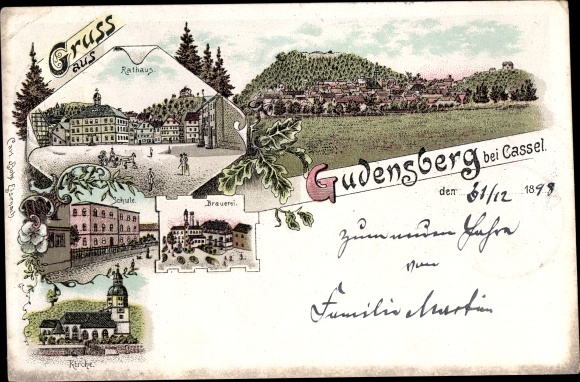 Gruss
aus
Rathaus.
Gudensberg bei Cassel.
den 31/12 1898
Schule.
Brauerei.
zum neuen Jahre
von
Familie Martin
Kirche.